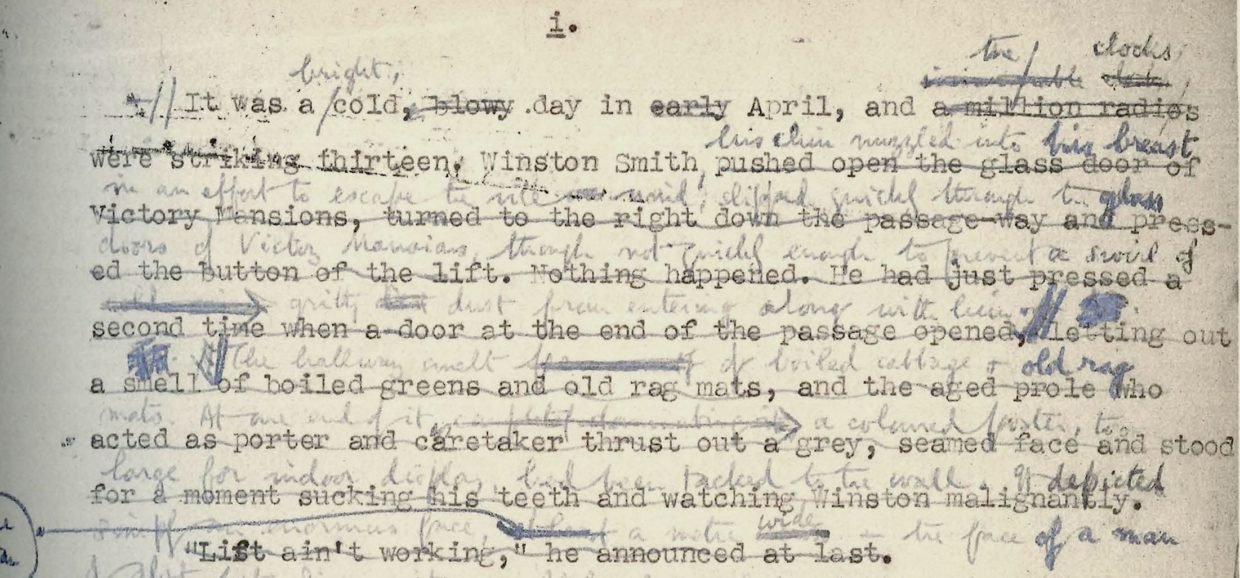 i.
the clocks,
bright,
It was a cold, blowy day in early April, and a million radios
were striking thirteen. Winston Smith, pushed open the glass door of
his chin nuzzled into his breast
in an effort to escape the vile wind, slipped quickly through the glass
Victory Mansions, turned to the right down the passage-way and press-
doors of Victory Mansions, though not quickly enough to prevent a swirl of
ed the button of the lift. Nothing happened. He had just pressed a
gritty dust from entering along with him.
second time when a door at the end of the passage opened, letting out
The hallway smelt of boiled cabbage & old rag
a smell of boiled greens and old rag mats, and the aged prole who
mats. At one end of it, a coloured poster, too
acted as porter and caretaker thrust out a grey, seamed face and stood
large for indoor display, had been tacked to the wall. It depicted
for a moment sucking his teeth and watching Winston malignantly.
simply an enormous face, a metre wide – the face of a man
"Lift ain't working," he announced at last.